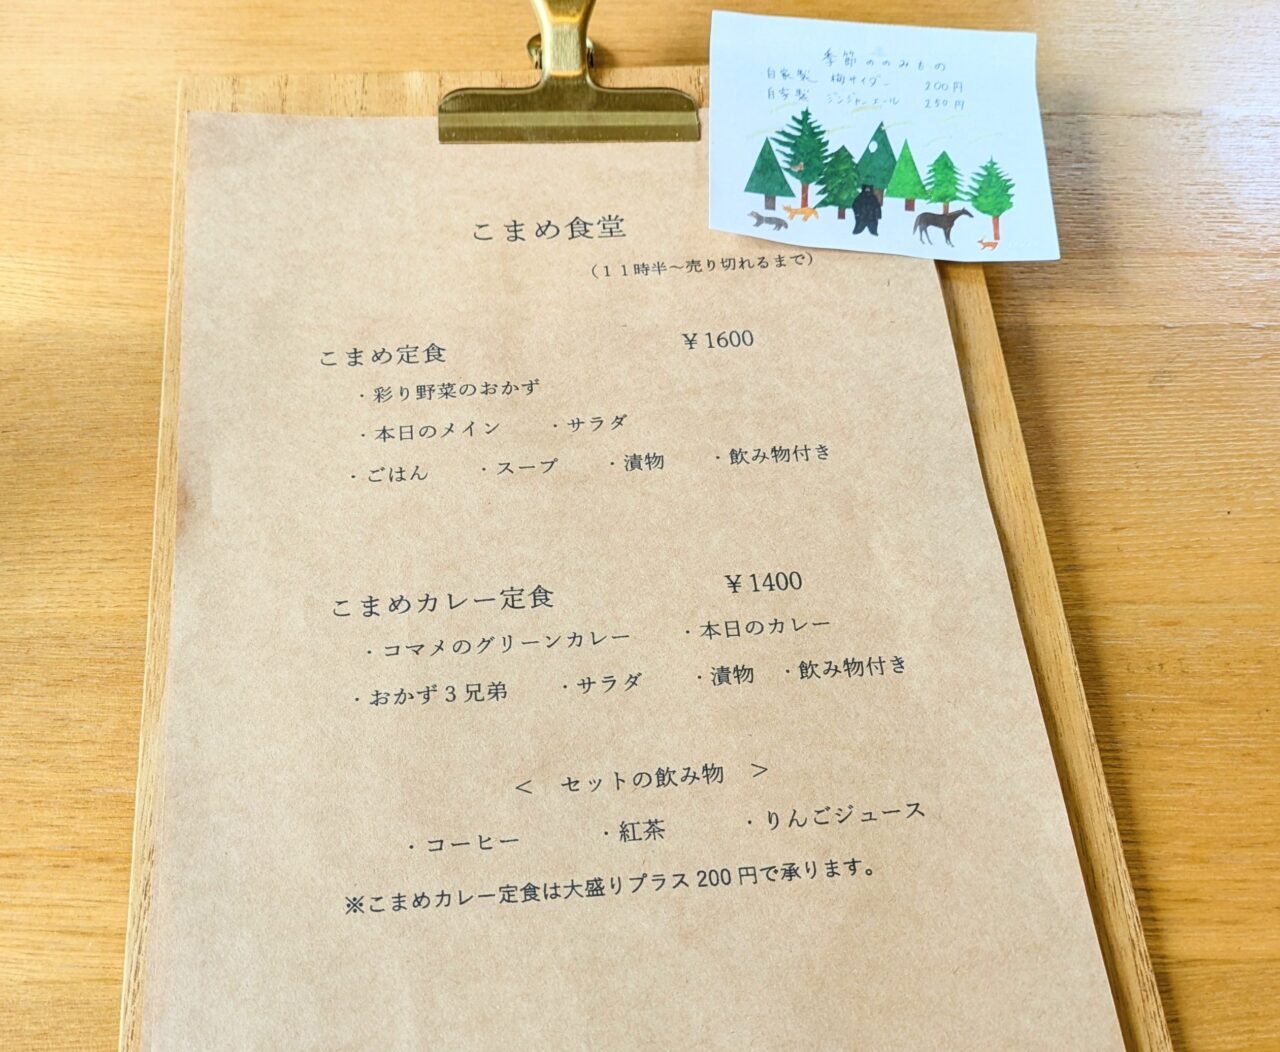 季節ののみもの
自家製 梅サイダー 200円
自家製 ジンジャーエール 250円
こまめ食堂
（１１時半～売り切れるまで）
こまめ定食 ￥1600
・彩り野菜のおかず
・本日のメイン ・サラダ
・ごはん ・スープ ・漬物 ・飲み物付き
こまめカレー定食 ￥1400
・コマメのグリーンカレー ・本日のカレー
・おかず３兄弟 ・サラダ ・漬物 ・飲み物付き
＜ セットの飲み物 ＞
・コーヒー ・紅茶 ・りんごジュース
※こまめカレー定食は大盛りプラス200円で承ります。